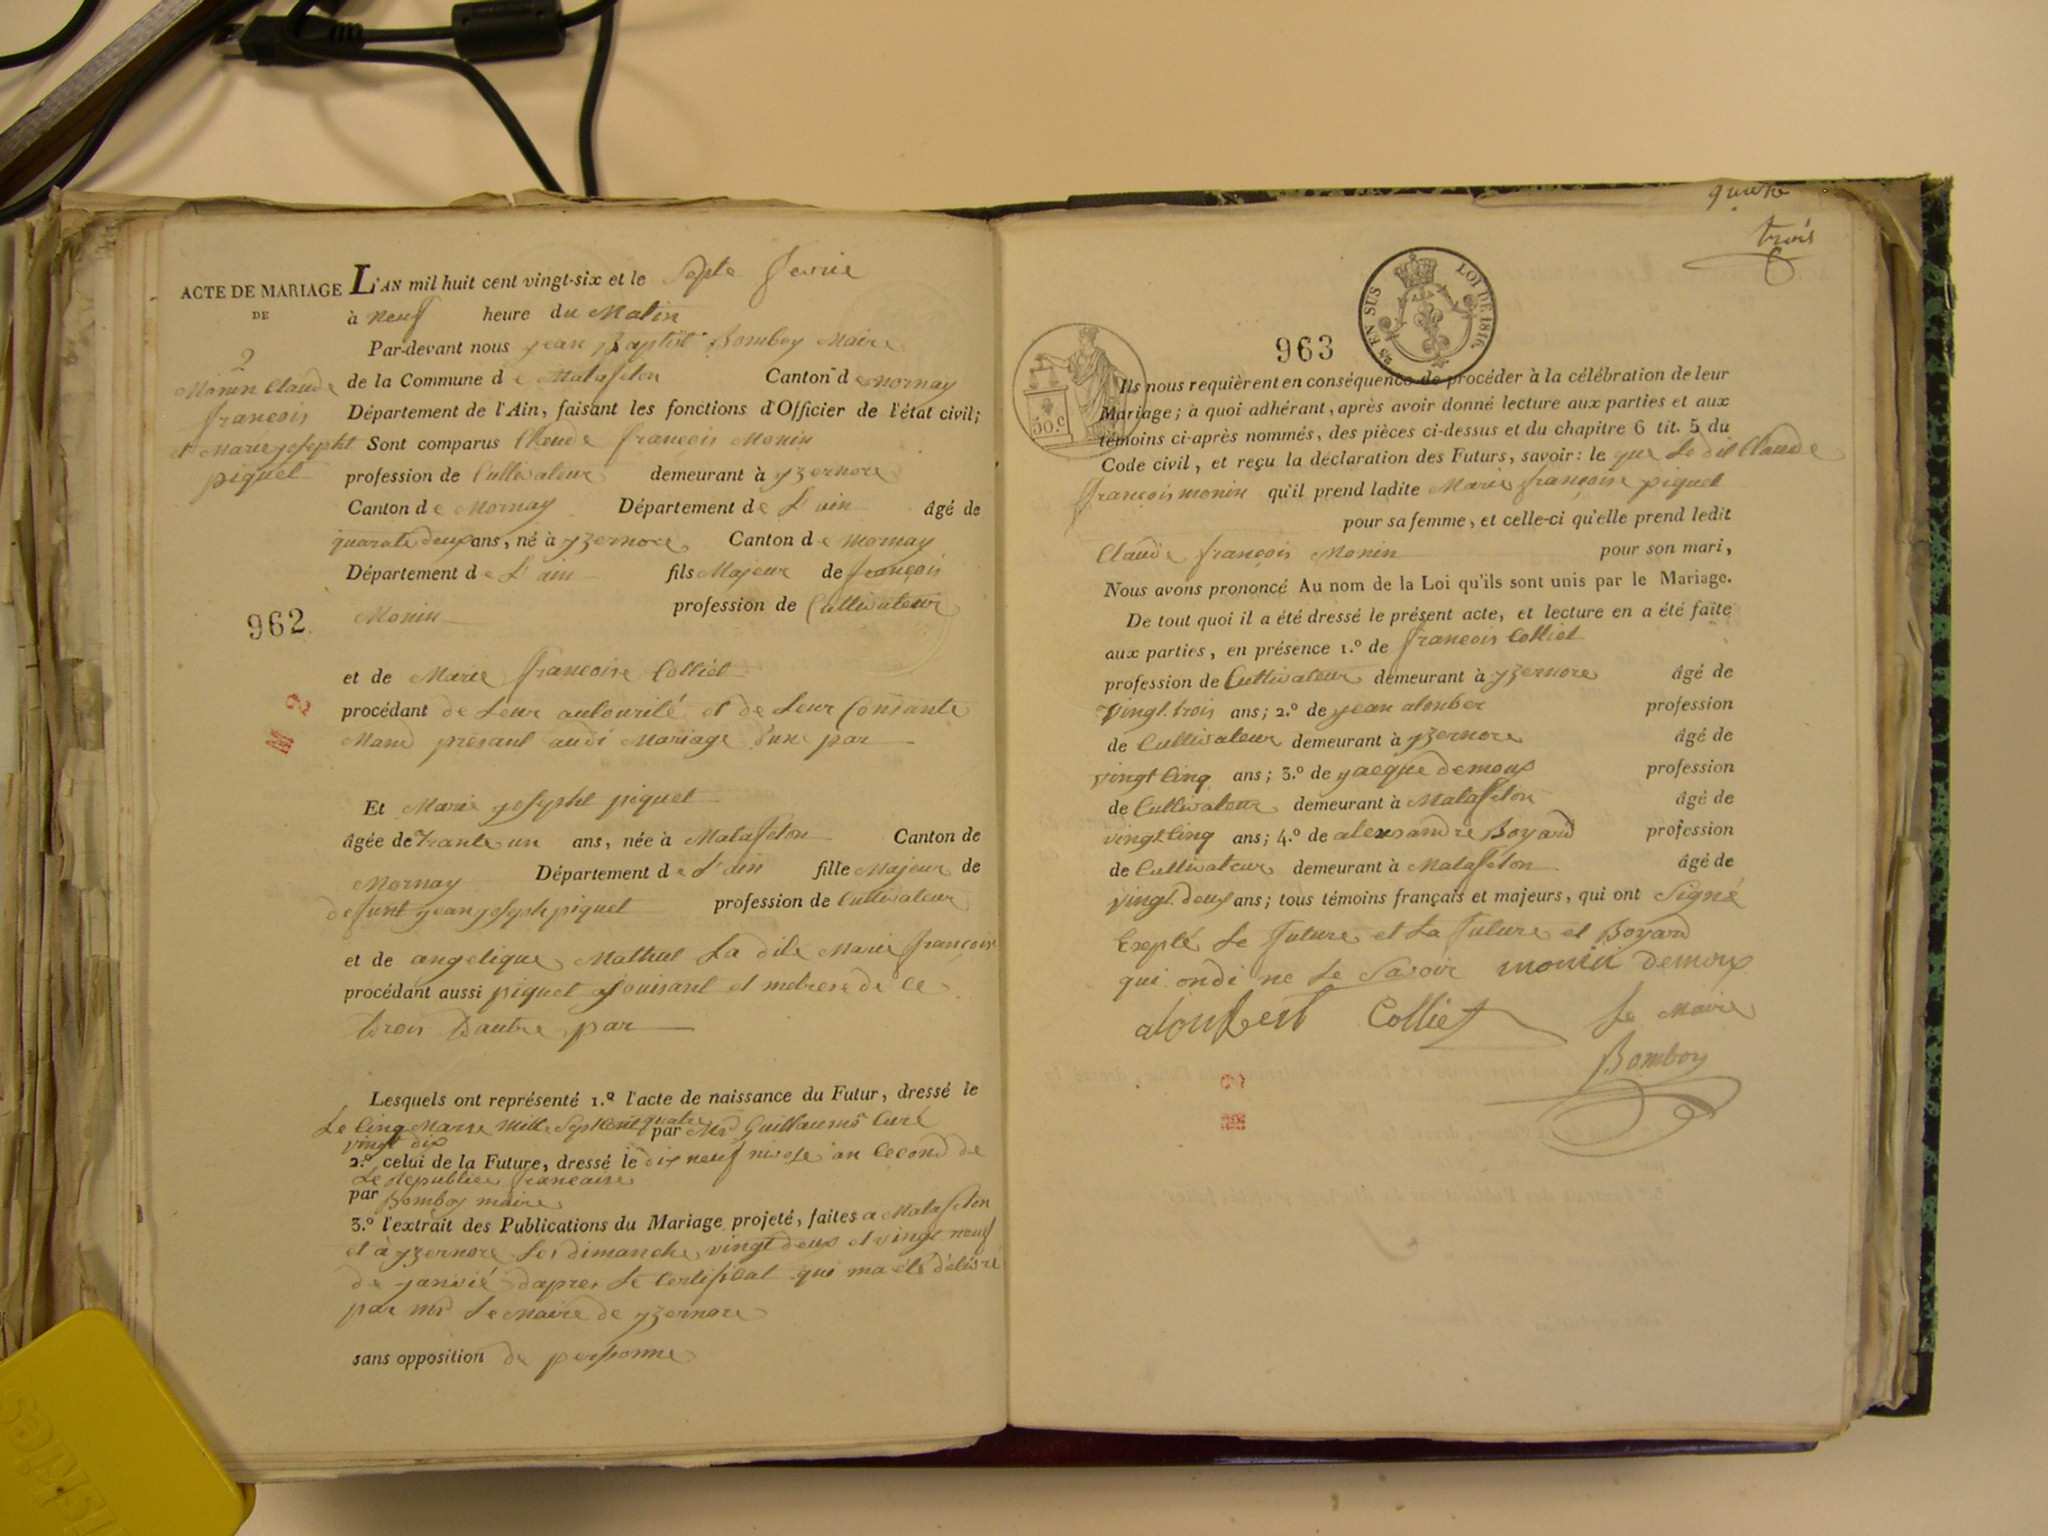 ACTE DE MARIAGE
DE
2
Monin Claude
françois
et Marie josepht
piquet
962
L'AN mil huit cent vingt-six et le Septe fevrie
à neuf heure du Matin
Par-devant nous jean Baptist Bomboy Maire
de la Commune de Matafelon Canton de Mornay
Département de l'Ain, faisant les fonctions d'Officier de l'état civil;
Sont comparus Claude françois Monin
profession de Cultivateur demeurant à yzernore
Canton de Mornay Département de L'ain âgé de
quarate deux ans, né à yzernore Canton de Mornay
Département de L'ain fils Majeur de françois
Monin profession de Cultivateur
et de Marie francoise Colliet
procédant de Leur autourité et de Leur
présant audi Mariage d'une par
Et Marie josepht piquet
âgée de Trante un ans, née à Matafelon Canton de
Mornay Département de L'ain fille Majeur de
defunt jean joseph piquet profession de Cultivateur
et de angelique Mathut La dite Marie françoise
procédant aussi piquet jouisant et metrese de ce
trois Dautre par
Lesquels ont représenté 1.º l'acte de naissance du Futur, dressé le
Le Cinq Marse Mille Sept Cent quatre par Mr Guillaumo Curé
vingt dix
2.º celui de la Future, dressé le dix neuf nivose an Cecond de
Le Republice francaise
par Bomboy maire
3.º l'extrait des Publications du Mariage projeté, faites a Matafelon
et à yzernore Les dimanche vingt deux et vingt neuf
de janvié dapres Le Certificat qui ma été délivré
par mr Le Maire de yzernore
sans opposition de personne
quatre
trois
25 EN SUS LOI DE 1816.
50.c
963
Ils nous requièrent en conséquence de procéder à la célébration de leur
Mariage; à quoi adhérant, après avoir donné lecture aux parties et aux
témoins ci-après nommés, des pièces ci-dessus et du chapitre 6 tit. 5 du
Code civil, et reçu la déclaration des Futurs, savoir: le que Le dit Claude
françois monin qu'il prend ladite Marie françoise piquet
pour sa femme, et celle-ci qu'elle prend ledit
Claude françois Monin pour son mari,
Nous avons prononcé Au nom de la Loi qu'ils sont unis par le Mariage.
De tout quoi il a été dressé le présent acte, et lecture en a été faite
aux parties, en présence 1.º de françois Colliet
profession de Cultivateur demeurant à yzernore âgé de
vingt trois ans; 2.º de jean alonber profession
de Cultivateur demeurant à yzernore âgé de
vingt Cinq ans; 3.º de jacque demoux profession
de Cultivateur demeurant à Matafelon âgé de
vingt Cinq ans; 4.º de alexsandre Boyard profession
de Cultivateur demeurant à Matafelon âgé de
vingt deux ans; tous témoins français et majeurs, qui ont Signé
Exepté Le future et La future et Boyard
qui ondi ne Le Savoir monin demoux
Colliet Le Maire
Bomboy